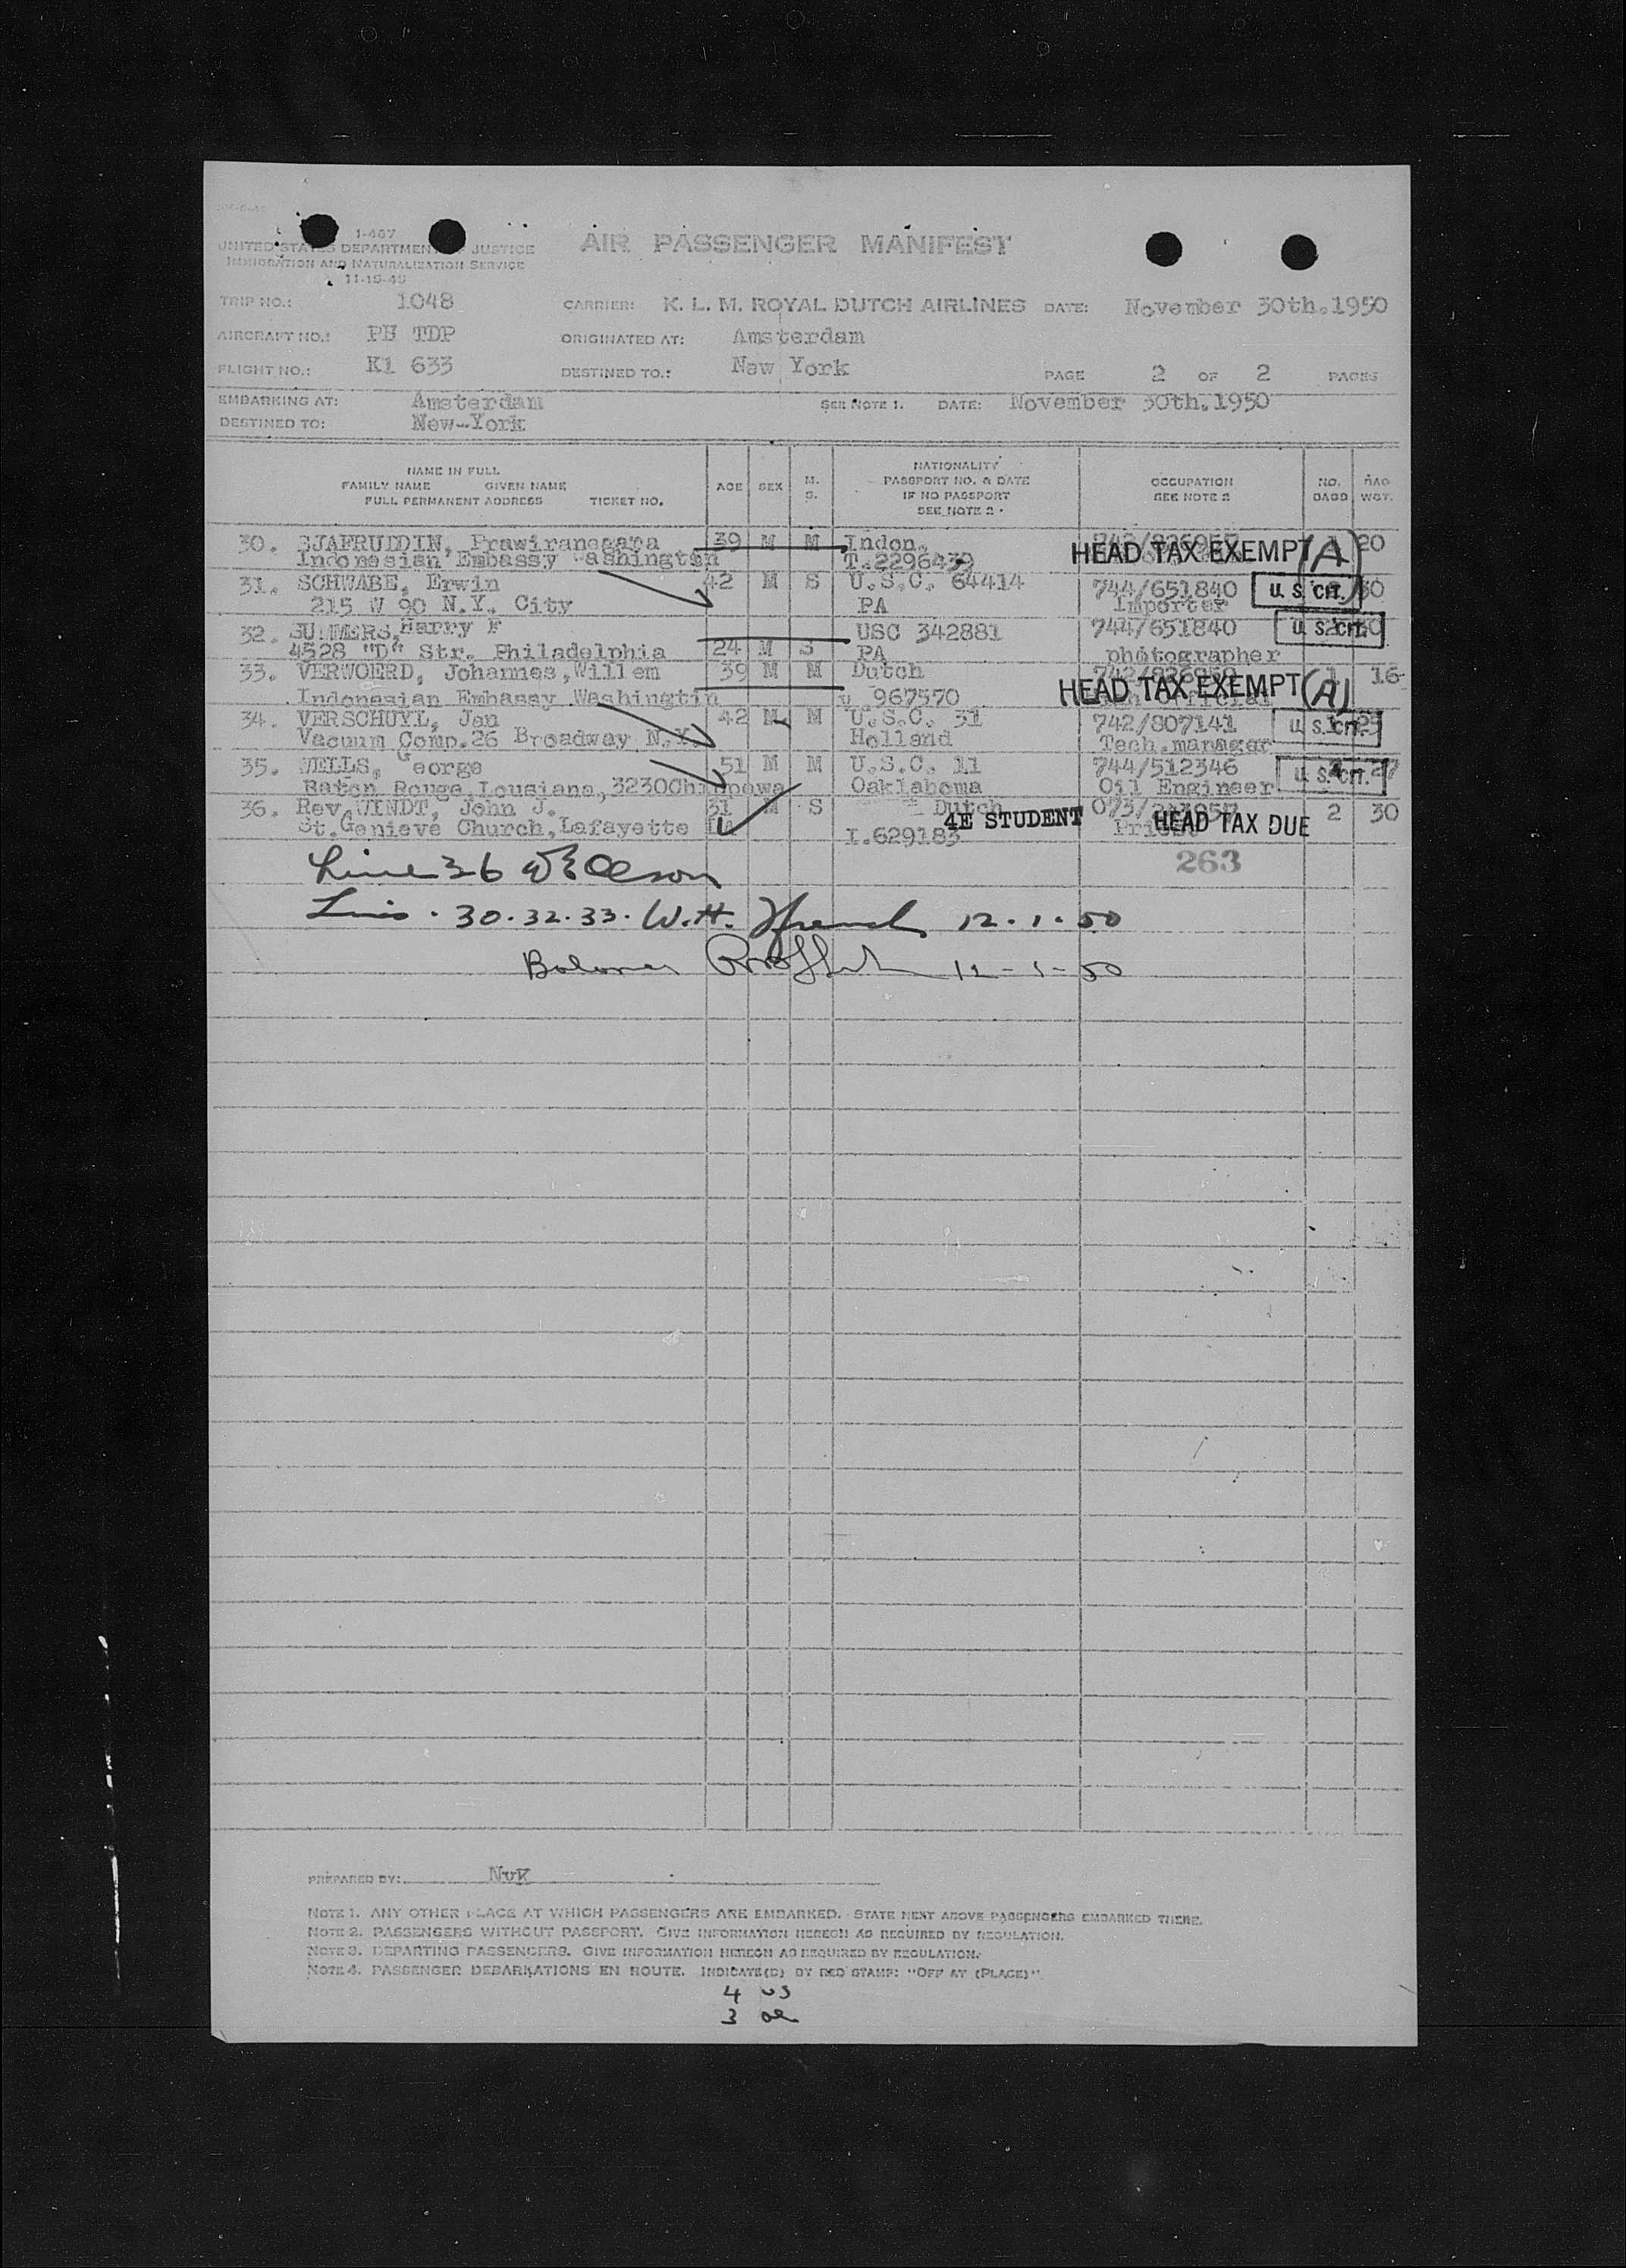 1-467
UNITED STATES DEPARTMENT OF JUSTICE
IMMIGRATION AND NATURALIZATION SERVICE
11-15-45
AIR PASSENGER MANIFEST
TRIP NO.: 1048 CARRIER: K. L. M. ROYAL DUTCH AIRLINES DATE: November 30th.1950
AIRCRAFT NO.: PH TDP ORIGINATED AT: Amsterdam
FLIGHT NO.: Kl 633 DESTINED TO.: New York PAGE 2 OF 2 PAGES
EMBARKING AT: Amsterdam SEE NOTE 1. DATE: November 30th.1950
DESTINED TO: New-York
NAME IN FULL
FAMILY NAME GIVEN NAME
FULL PERMANENT ADDRESS TICKET NO.
AGE SEX M. S.
NATIONALITY
PASSPORT NO. & DATE
IF NO PASSPORT
SEE NOTE 2
OCCUPATION
SEE NOTE 2
NO. BAGS
BAG WGT.
30. SJAFRUDDIN, Prawiranegara 39 M M Indon. 1 20
Indonesian Embassy Washingtin T.2296439 HEAD TAX EXEMPT (A)
31. SCHWABE, Erwin 42 M S U.S.C. 64414 744/651840 U. S. CIT. 30
215 W 90 N.Y. City PA Importer
32. SUMMERS, Harry F USC 342881 744/651840 U. S. CIT.
4528 "D" Str. Philadelphia 24 M S PA photographer
33. VERWOERD, Johannes,Willem 39 M M Dutch 1 16
Indonesian Embassy Washingtin v 967570 HEAD TAX EXEMPT (A)
34. VERSCHUYL, Jan 42 M M U.S.C. 31 742/807141 U. S. CIT. 25
Vacuum Comp.26 Broadway N.Y. Holland Tech.manager
35. WELLS, George 51 M M U.S.C. 11 744/512346 U. S. CIT. 27
Baton Rouge,Lousiana,3230Chippewa Oaklahoma Oil Engineer
36. Rev.WINDT, John J. 31 M S Dutch 2 30
St.Genieve Church,Lafayette LA I.629183 4E STUDENT Priest HEAD TAX DUE
263
Line 36 Olson
Lines. 30.32.33. W.H. French 12.1.50
Balance 12-1-50
PREPARED BY: NvK
NOTE 1. ANY OTHER PLACE AT WHICH PASSENGERS ARE EMBARKED. STATE NEXT ABOVE PASSENGERS EMBARKED THERE.
NOTE 2. PASSENGERS WITHOUT PASSPORT. GIVE INFORMATION HEREON AS REQUIRED BY REGULATION.
NOTE 3. DEPARTING PASSENGERS. GIVE INFORMATION HEREON AS REQUIRED BY REGULATION.
NOTE 4. PASSENGER DEBARKATIONS EN ROUTE. INDICATE(D) BY RED STAMP: "OFF AT (PLACE)"
4 US
3